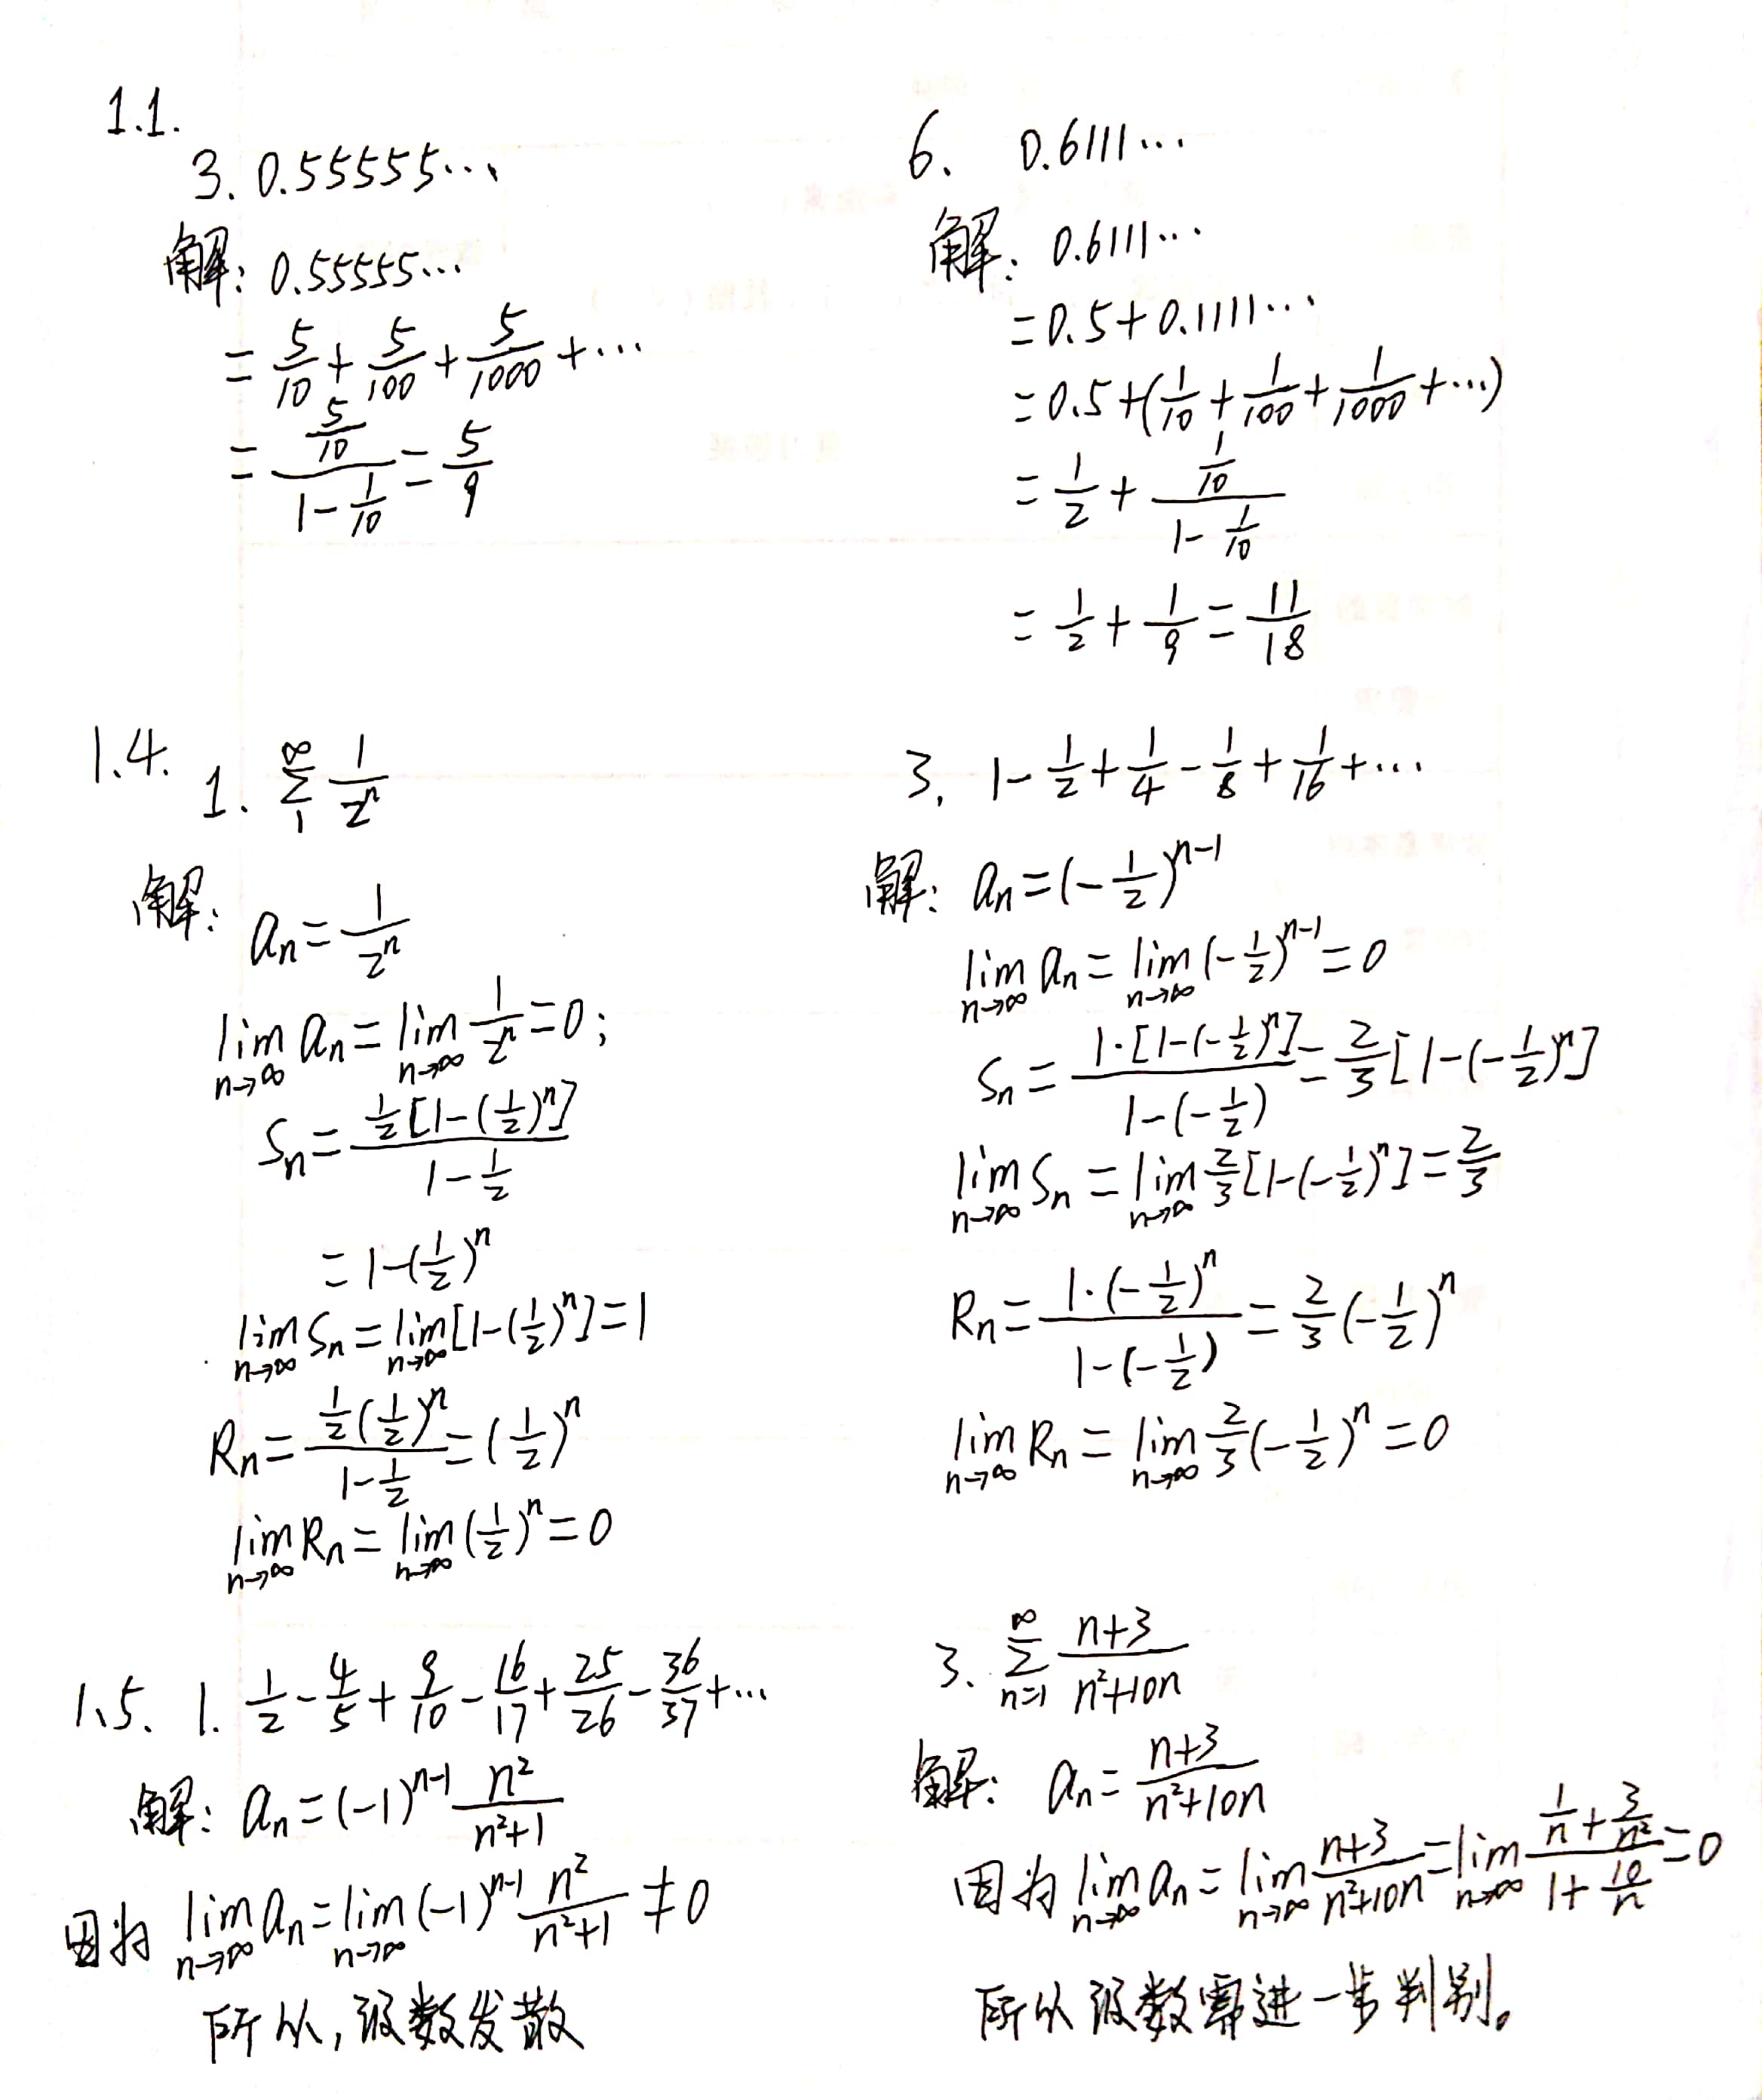 1.1.
3. 0.55555···
解: 0.55555···
= 5/10 + 5/100 + 5/1000 + ···
= (5/10)/(1 - 1/10) = 5/9
6. 0.6111···
解: 0.6111···
= 0.5 + 0.1111···
= 0.5 + (1/10 + 1/100 + 1/1000 + ···)
= 1/2 + (1/10)/(1 - 1/10)
= 1/2 + 1/9 = 11/18
1.4. 1. ∑_1^∞ 1/2^n
解: a_n = 1/2^n
lim_{n→∞} a_n = lim_{n→∞} 1/2^n = 0;
S_n = (1/2[1-(1/2)^n])/(1 - 1/2)
= 1-(1/2)^n
lim_{n→∞} S_n = lim_{n→∞} [1-(1/2)^n] = 1
R_n = (1/2(1/2)^n)/(1 - 1/2) = (1/2)^n
lim_{n→∞} R_n = lim_{n→∞} (1/2)^n = 0
3. 1 - 1/2 + 1/4 - 1/8 + 1/16 + ···
解: a_n = (-1/2)^{n-1}
lim_{n→∞} a_n = lim_{n→∞} (-1/2)^{n-1} = 0
S_n = (1·[1-(-1/2)^n])/(1-(-1/2)) = 2/3[1-(-1/2)^n]
lim_{n→∞} S_n = lim_{n→∞} 2/3[1-(-1/2)^n] = 2/3
R_n = (1·(-1/2)^n)/(1-(-1/2)) = 2/3(-1/2)^n
lim_{n→∞} R_n = lim_{n→∞} 2/3(-1/2)^n = 0
1.5. 1. 1/2 - 4/5 + 9/10 - 16/17 + 25/26 - 36/37 + ···
解: a_n = (-1)^{n-1} n^2/(n^2+1)
因为 lim_{n→∞} a_n = lim_{n→∞} (-1)^{n-1} n^2/(n^2+1) ≠ 0
所以, 级数发散
3. ∑_{n=1}^∞ (n+3)/(n^2+10n)
解: a_n = (n+3)/(n^2+10n)
因为 lim_{n→∞} a_n = lim_{n→∞} (n+3)/(n^2+10n) = lim_{n→∞} (1/n + 3/n^2)/(1 + 10/n) = 0
所以 级数需进一步判别。